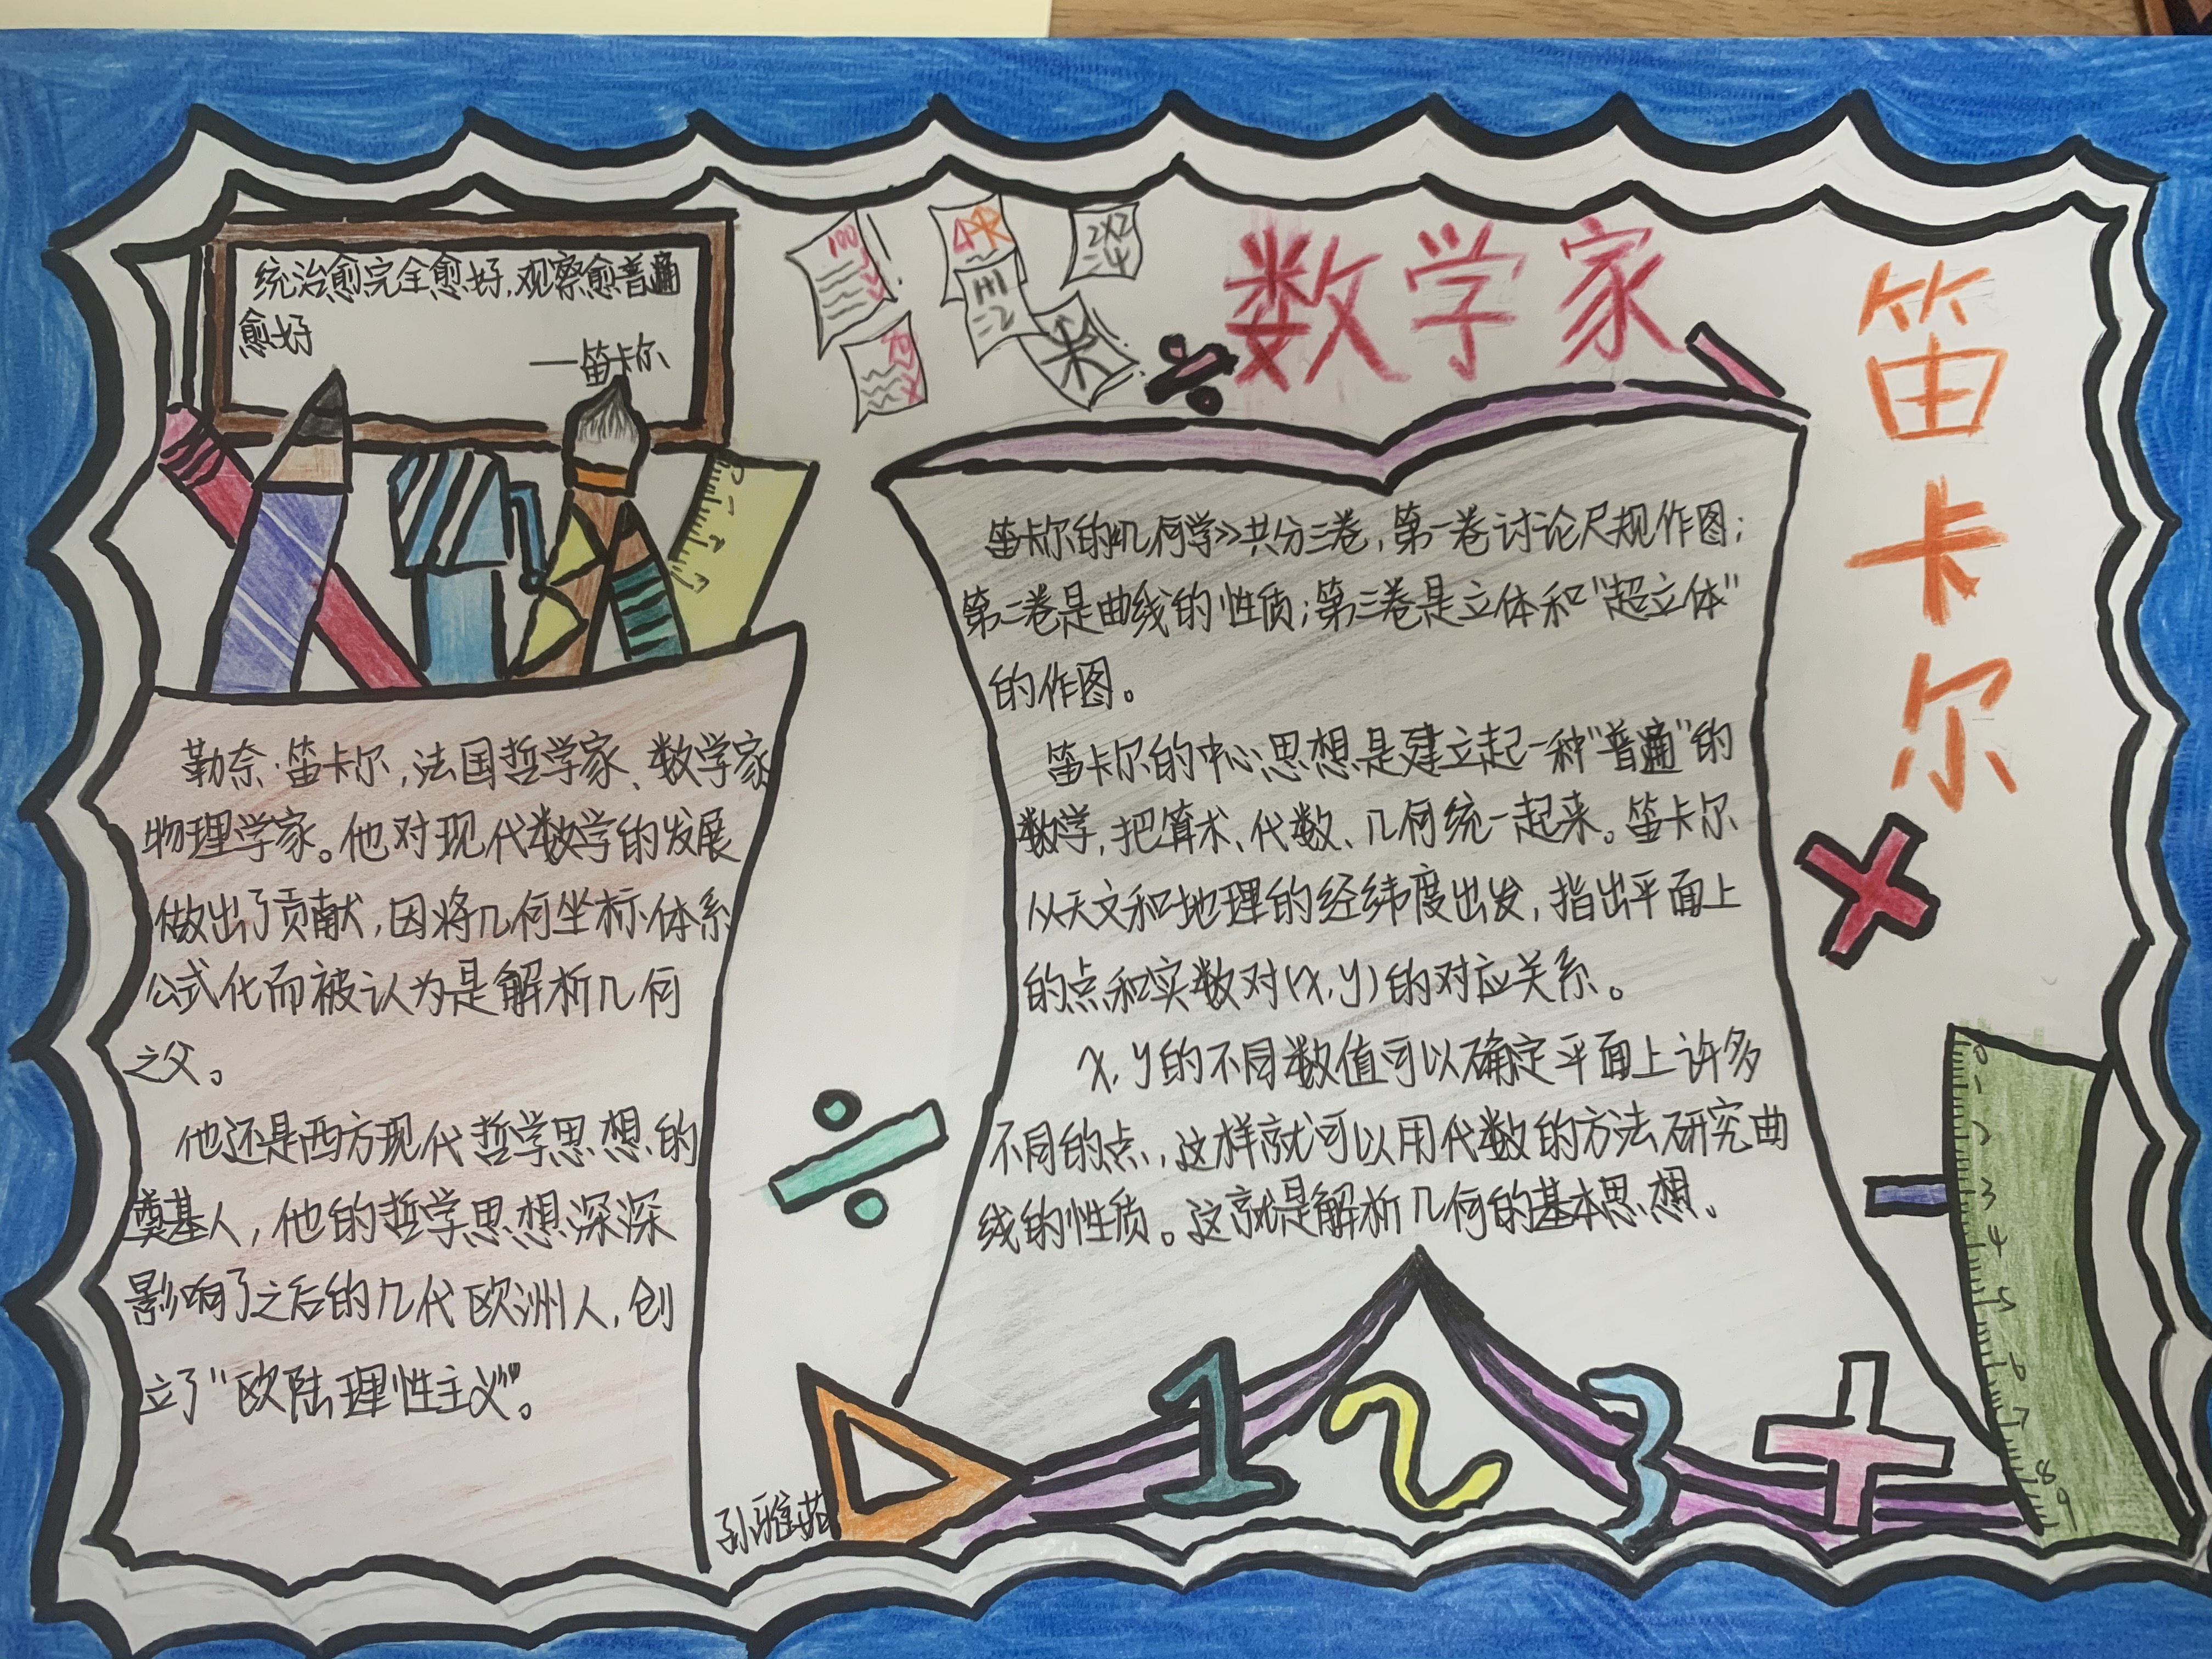 数学家
笛卡尔
统治愈完全愈好,观察愈普遍
愈好
——笛卡尔
100
1+1
=2
2×2
=4
勒奈·笛卡尔,法国哲学家、数学家
物理学家。他对现代数学的发展
做出了贡献,因将几何坐标体系
公式化而被认为是解析几何
之父。
他还是西方现代哲学思想的
奠基人,他的哲学思想深深
影响了之后的几代欧洲人,创
立了“欧陆理性主义”。
笛卡尔的《几何学》共分三卷,第一卷讨论尺规作图;
第二卷是曲线的性质;第三卷是立体和“超立体”
的作图。
笛卡尔的中心思想是建立起一种“普遍”的
数学,把算术、代数、几何统一起来。笛卡尔
从天文和地理的经纬度出发,指出平面上
的点和实数对(x,y)的对应关系。
x,y的不同数值可以确定平面上许多
不同的点,这样就可以用代数的方法研究曲
线的性质。这就是解析几何的基本思想。
1 2 3
0
1
2
3
4
5
6
7
8
9
孙雅茹